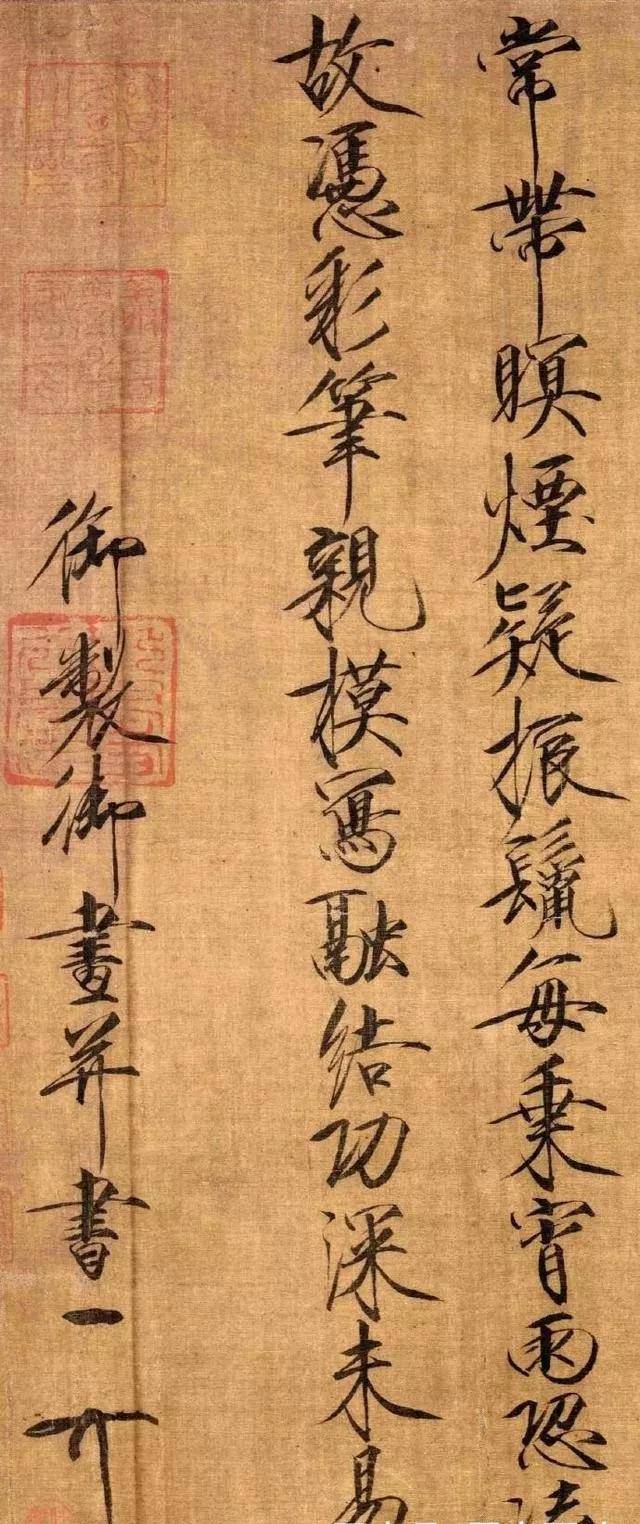 常帶暝煙疑振鬣每乗宵雨恐
故憑彩筆親模寫融結功深未易
御製御畫并書
一